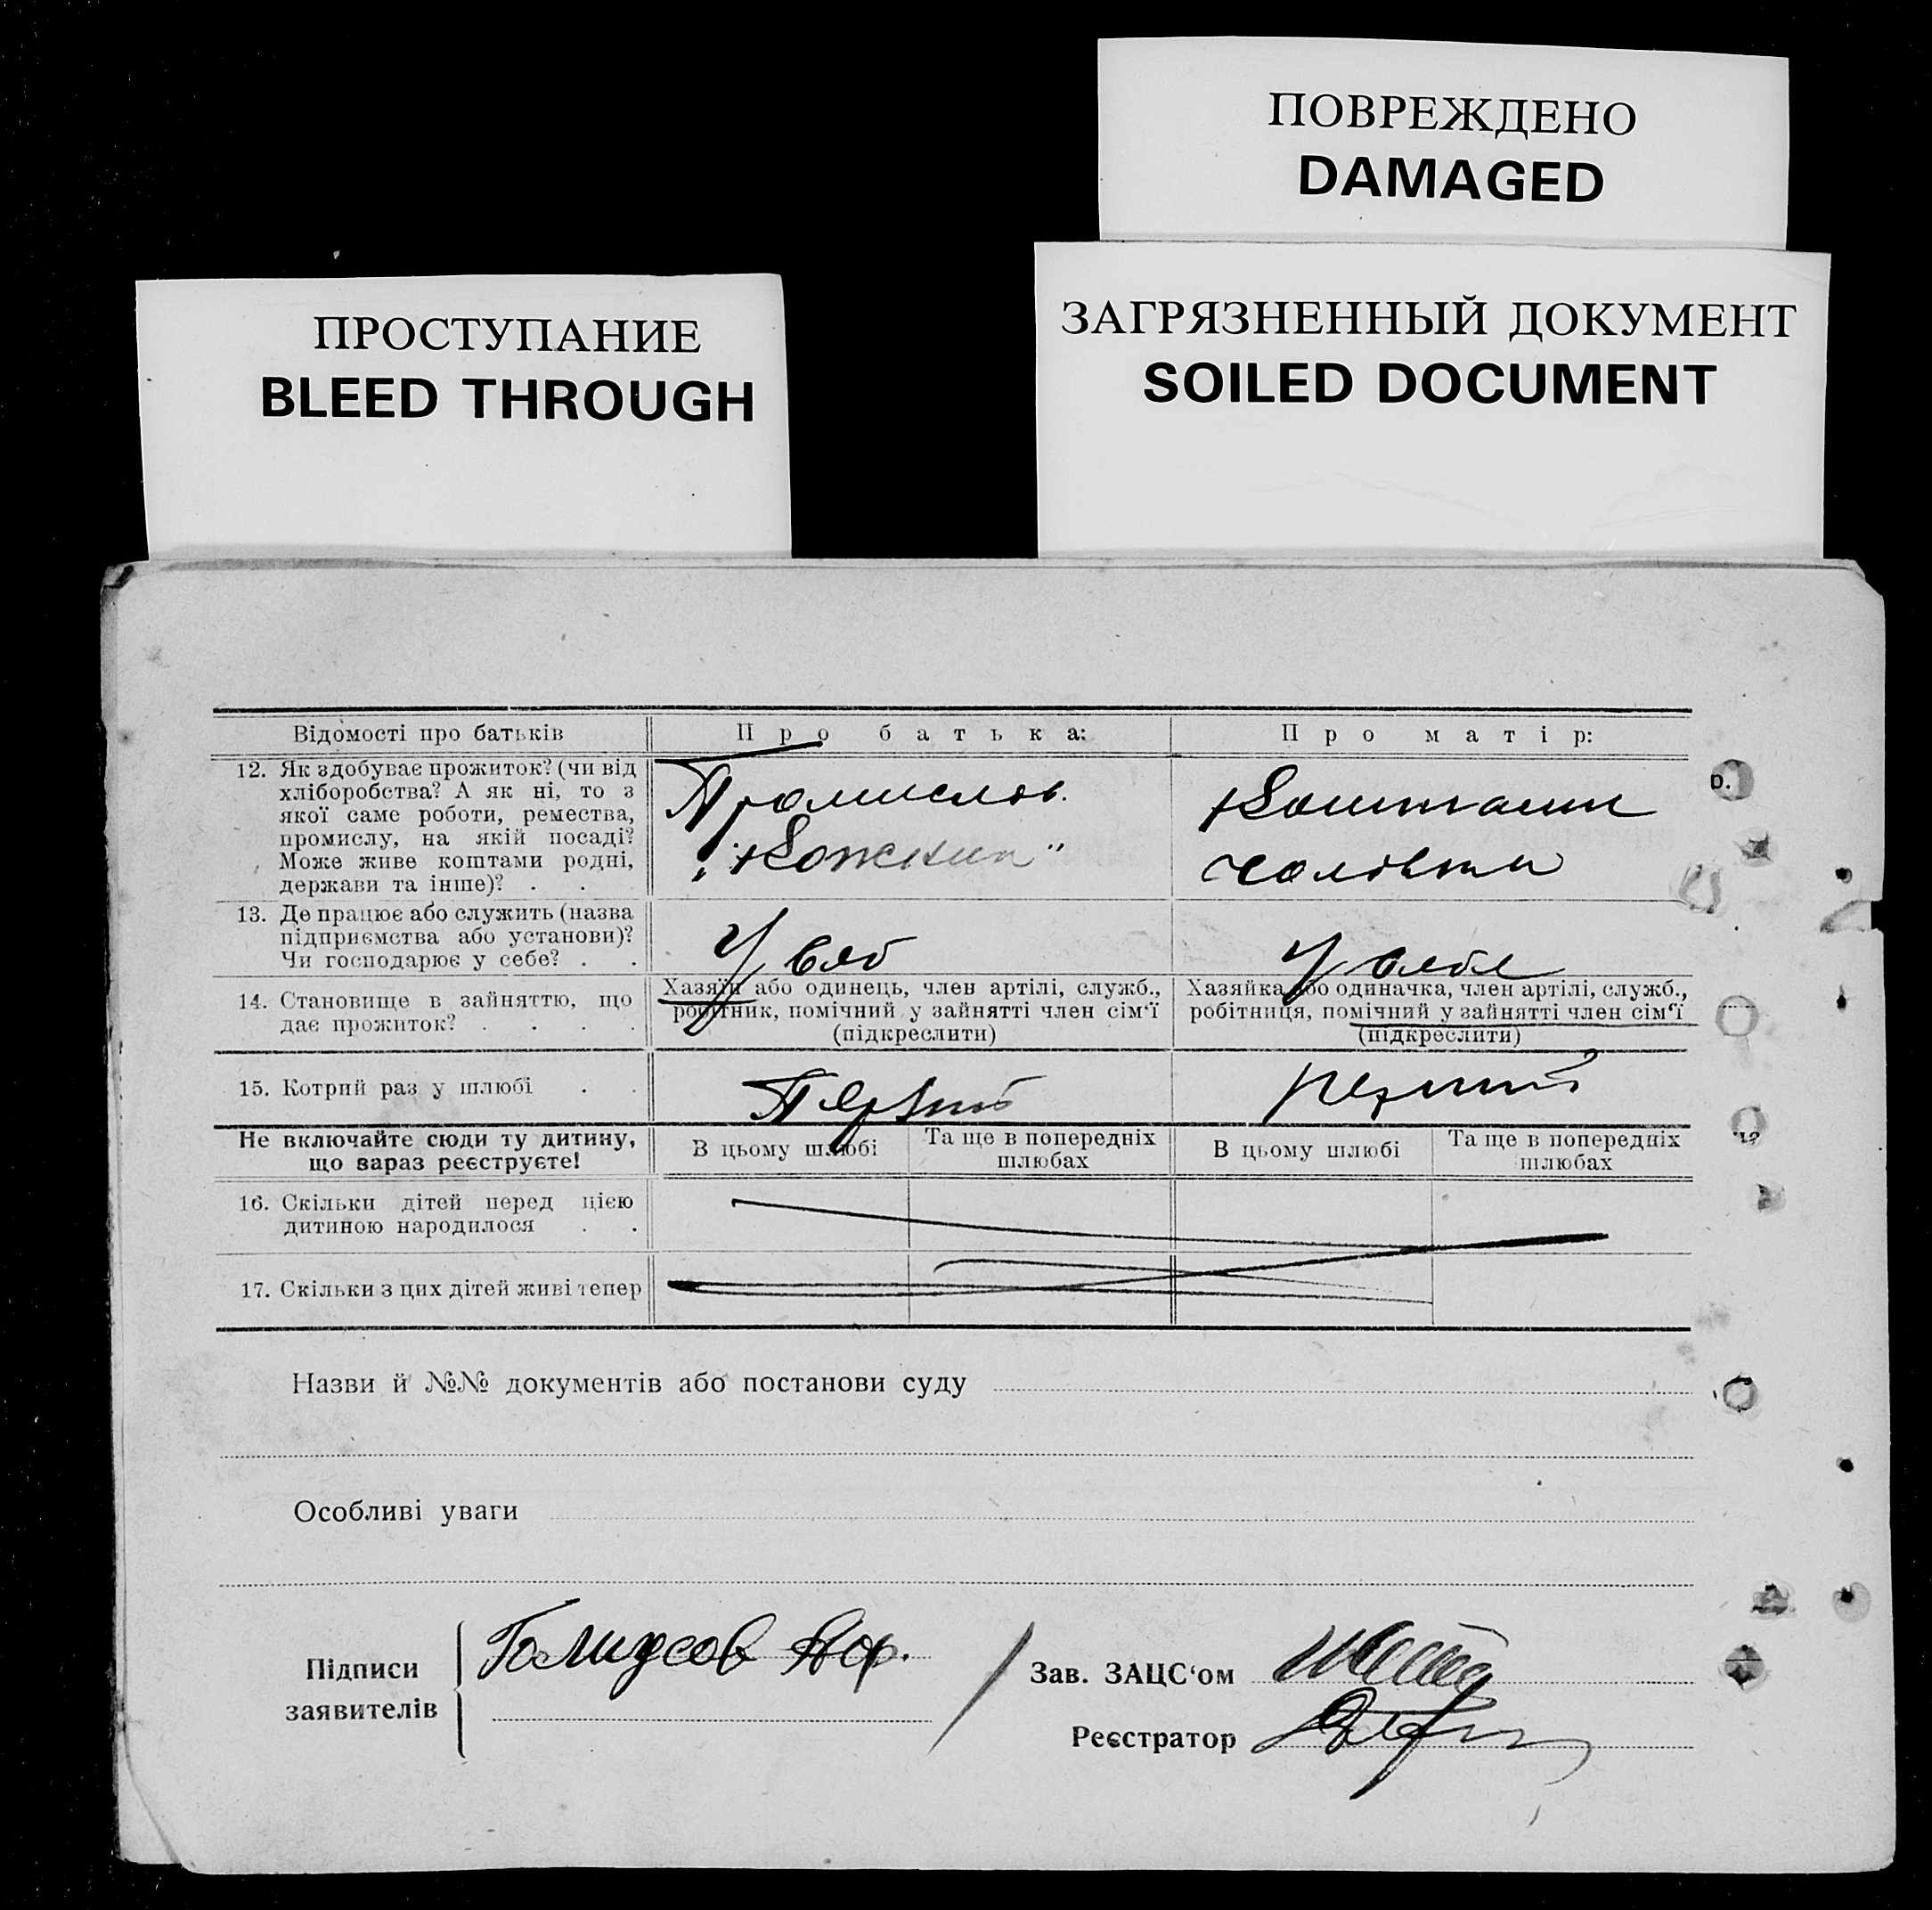 ПОВРЕЖДЕНО
DAMAGED
ПРОСТУПАНИЕ
BLEED THROUGH
ЗАГРЯЗНЕННЫЙ ДОКУМЕНТ
SOILED DOCUMENT
Відомості про батьків
Про батька:
Про матір:
12. Як здобуває прожиток? (чи від
хліборобства? А як ні, то з
якої саме роботи, ремества,
промислу, на якій посаді?
Може живе коштами родні,
держави та інше)? . .
Промислов.
Коштами
чоловіка
13. Де працює або служить (назва
підприємства або установи)?
Чи господарює у себе? . .
У себе
У себе
14. Становище в зайняттю, що
дає прожиток? . . . .
Хазяїн або одинець, член артілі, служб.,
робітник, помічний у зайнятті член сім‘ї
(підкреслити)
Хазяйка або одиначка, член артілі, служб.,
робітниця, помічний у зайнятті член сім‘ї
(підкреслити)
15. Котрий раз у шлюбі . .
Перший
перший
Не включайте сюди ту дитину,
що зараз реєструєте!
В цьому шлюбі
Та ще в попередніх
шлюбах
В цьому шлюбі
Та ще в попередніх
шлюбах
16. Скільки дітей перед цією
дитиною народилося . .
17. Скільки з цих дітей живі тепер
Назви й №№ документів або постанови суду
Особливі уваги
Підписи
заявителів
Зав. ЗАЦС‘ом
Реєстратор